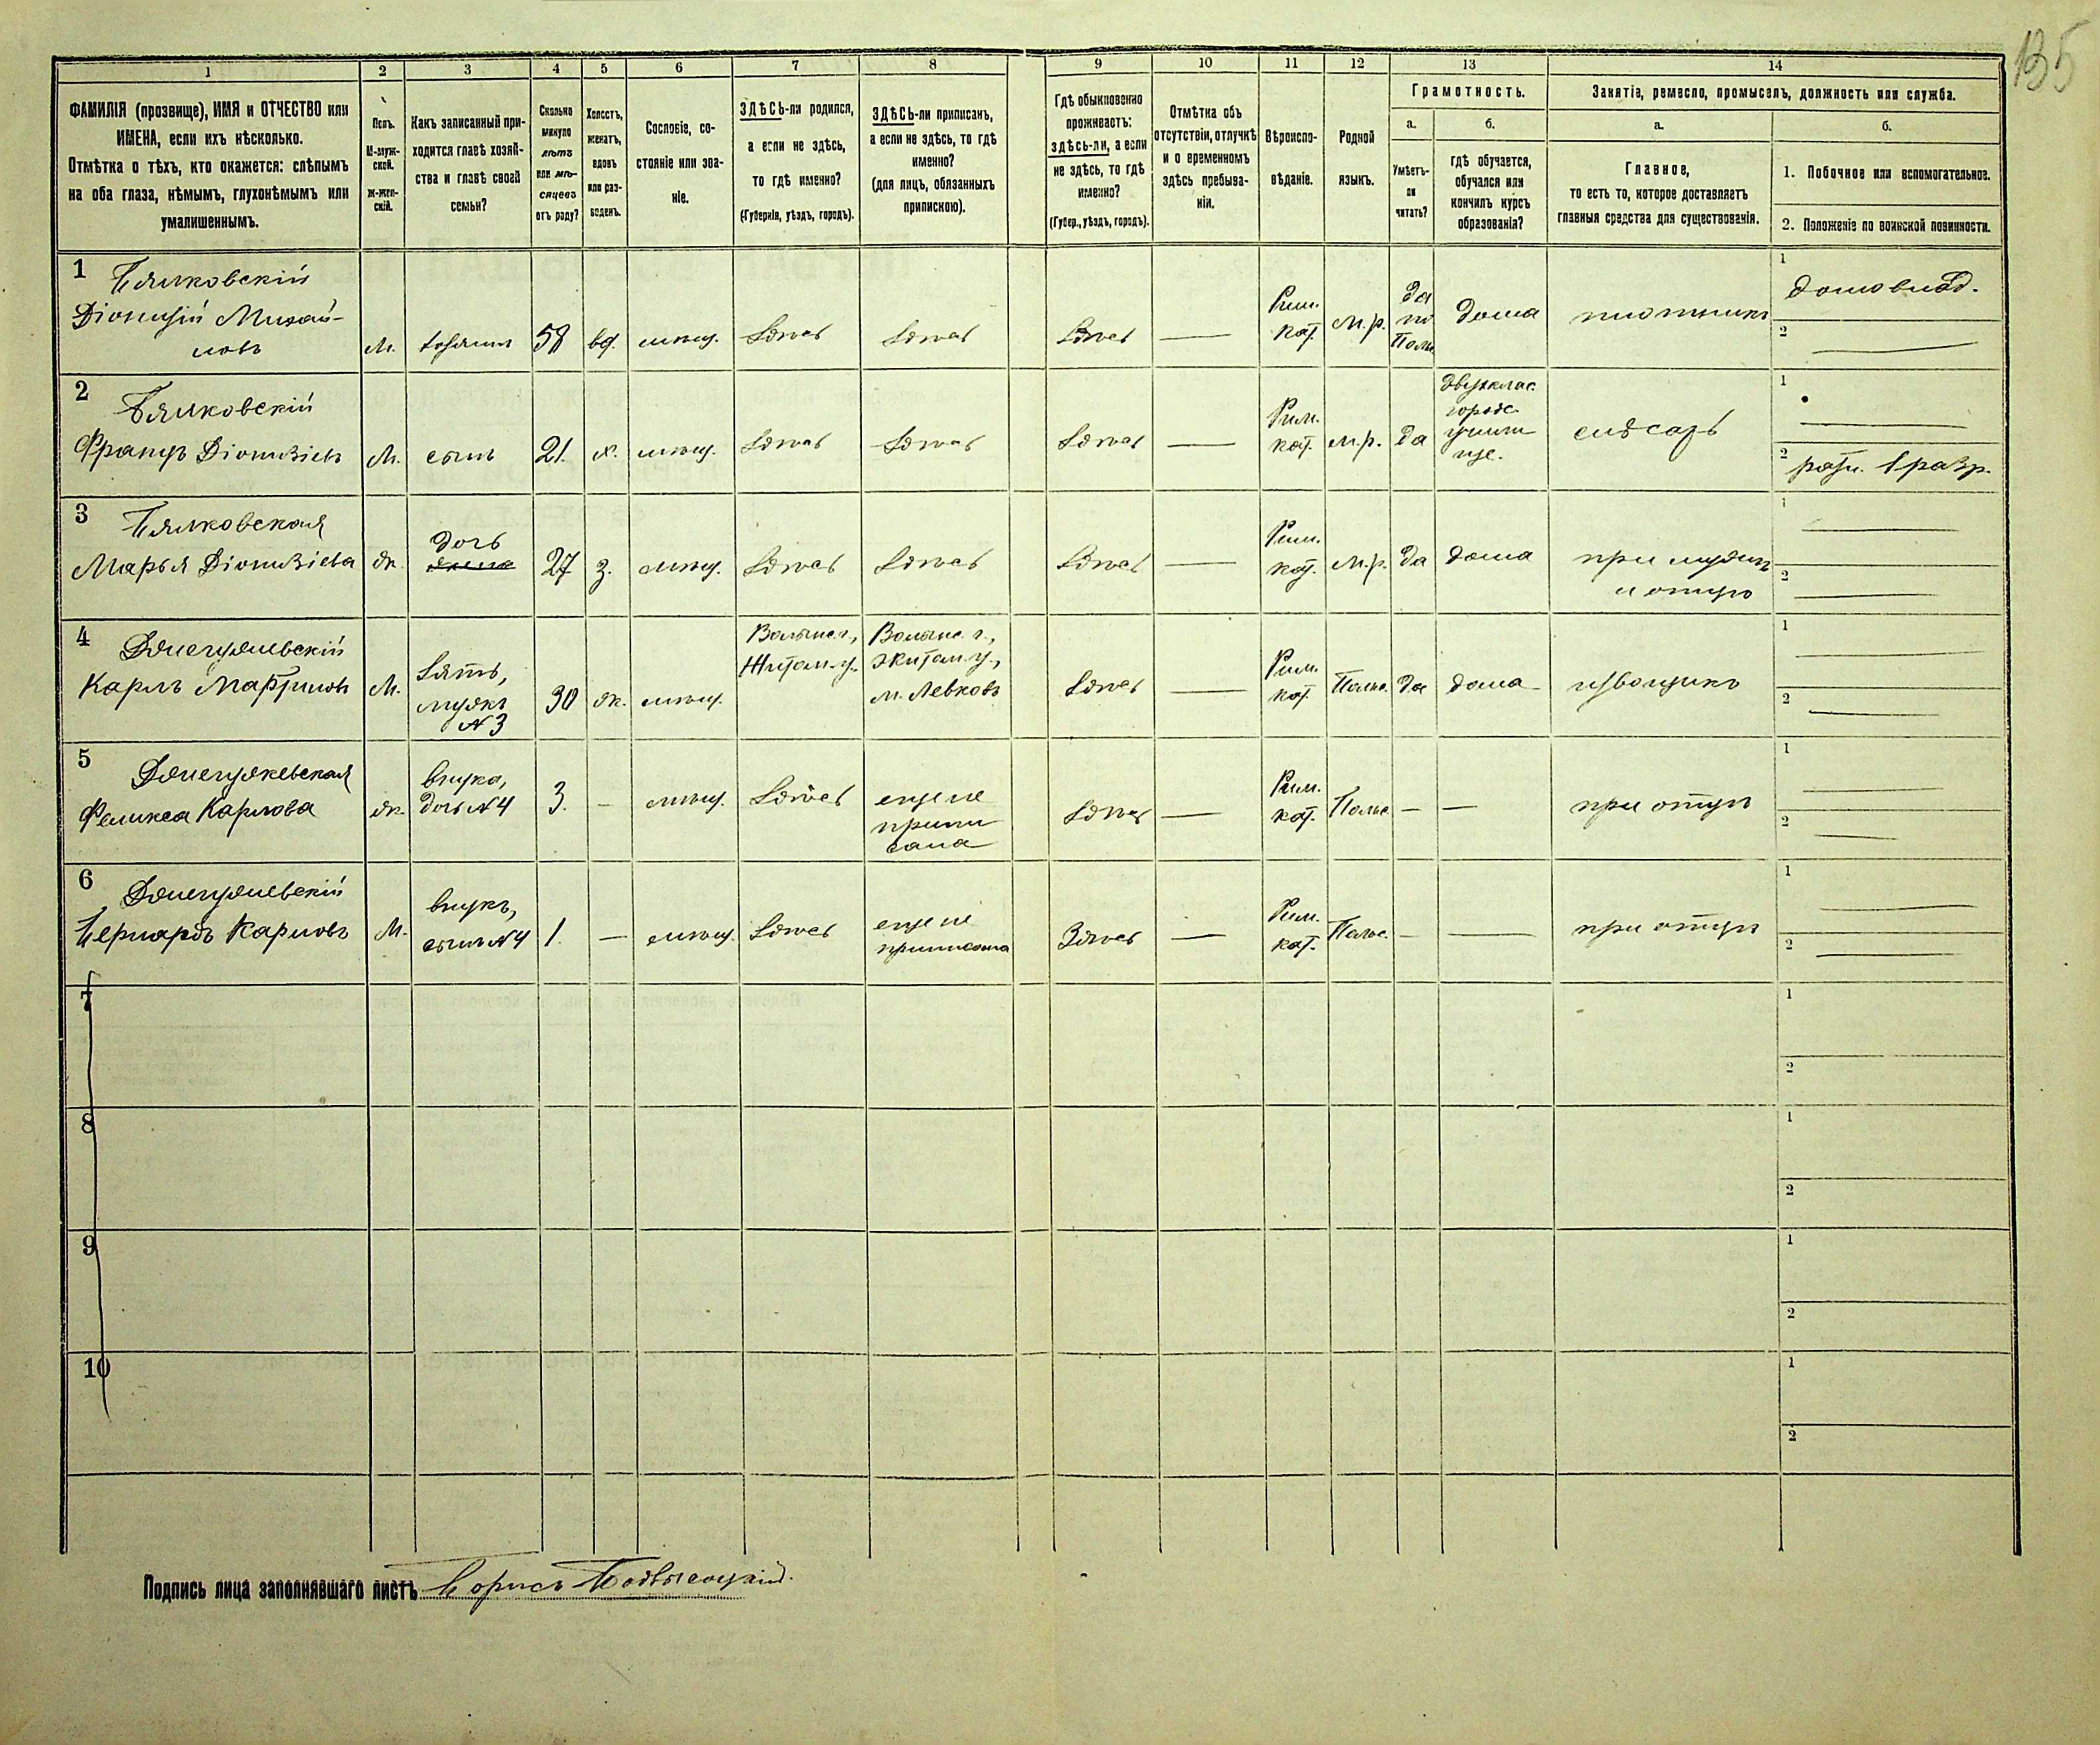 135
1 2 3 4 5 6 7 8 9 10 11 12 13 14
ФАМИЛІЯ (прозвище), ИМЯ и ОТЧЕСТВО или
ИМЕНА, если ихъ нѣсколько.
Отмѣтка о тѣхъ, кто окажется: слѣпымъ
на оба глаза, нѣмымъ, глухонѣмымъ или
умалишеннымъ.
Полъ.
М-муж-
ской.
Ж-жен-
скій.
Какъ записанный при-
ходится главѣ хозяй-
ства и главѣ своей
семьи?
Сколько
минуло
лѣтъ
или мѣ-
сяцевъ
отъ роду?
Холостъ,
женатъ,
вдовъ
или раз-
веденъ.
Сословіе, со-
стояніе или зва-
ніе.
ЗДѢСЬ-ли родился,
а если не здѣсь,
то гдѣ именно?
(Губернія, уѣздъ, городъ).
ЗДѢСЬ-ли приписанъ,
а если не здѣсь, то гдѣ
именно?
(для лицъ, обязанныхъ
припискою).
Гдѣ обыкновенно
проживаетъ:
здѣсь-ли, а если
не здѣсь, то гдѣ
именно?
(Губер., уѣздъ, городъ).
Отмѣтка объ
отсутствіи, отлучкѣ
и о временномъ
здѣсь пребыва-
ніи.
Вѣроиспо-
вѣданіе.
Родной
языкъ.
Грамотность.
а.
Умѣетъ-
ли
читать?
б.
гдѣ обучается,
обучался или
кончилъ курсъ
образованія?
Занятіе, ремесло, промыселъ, должность или служба.
а.
Главное,
то есть то, которое доставляетъ
главныя средства для существованія.
б.
1. Побочное или вспомогательное.
2. Положеніе по воинской повинности.
1
Бялковскій
Діонизій Михай-
ловъ
М.
хозяинъ
58
вд.
мѣщ.
Здѣсь
Здѣсь
Здѣсь
Рим.
кат.
м.р.
Да
по
Польс
дома
плотникъ
1 домовлад.
2
2
Бялковскій
Францъ Діонизіевъ
М.
сынъ
21.
х.
мѣщ.
Здѣсь
Здѣсь
Здѣсь
Рим.
кат.
м.р.
да
двухклас.
городс.
училищ
ще.
слѣсарь
1
2 ратн. 1 разр.
3
Бялковская
Марья Діонизіева
ж.
дочь
27
з.
мѣщ.
Здѣсь
Здѣсь
Здѣсь
Рим.
кат.
м.р.
да
дома
при мужѣ
и отцѣ
1
2
4
Карлъ Мартиновъ
М.
зять,
мужъ
№ 3
30
ж.
мѣщ.
Волынс. г.,
Житом. у.
Волынс. г.,
Житом. у.,
м. Левковъ
Здѣсь
Рим.
кат.
Польс.
да
дома
извощикъ
1
2
5
Фелікса Карлова
ж.
внука,
дочь № 4
3.
мѣщ.
Здѣсь
еще не
припи
сана
Здѣсь
Рим.
кат.
Польс.
при отцѣ
1
2
6
Бернардъ Карловъ
М.
внукъ,
сынъ № 4
1.
мѣщ.
Здѣсь
еще не
приписанъ
Здѣсь
Рим.
кат.
Польс.
при отцѣ
1
2
7
1
2
8
1
2
9
1
2
10
1
2
Подпись лица заполнявшаго листъ Борисъ Подвысоцкій.